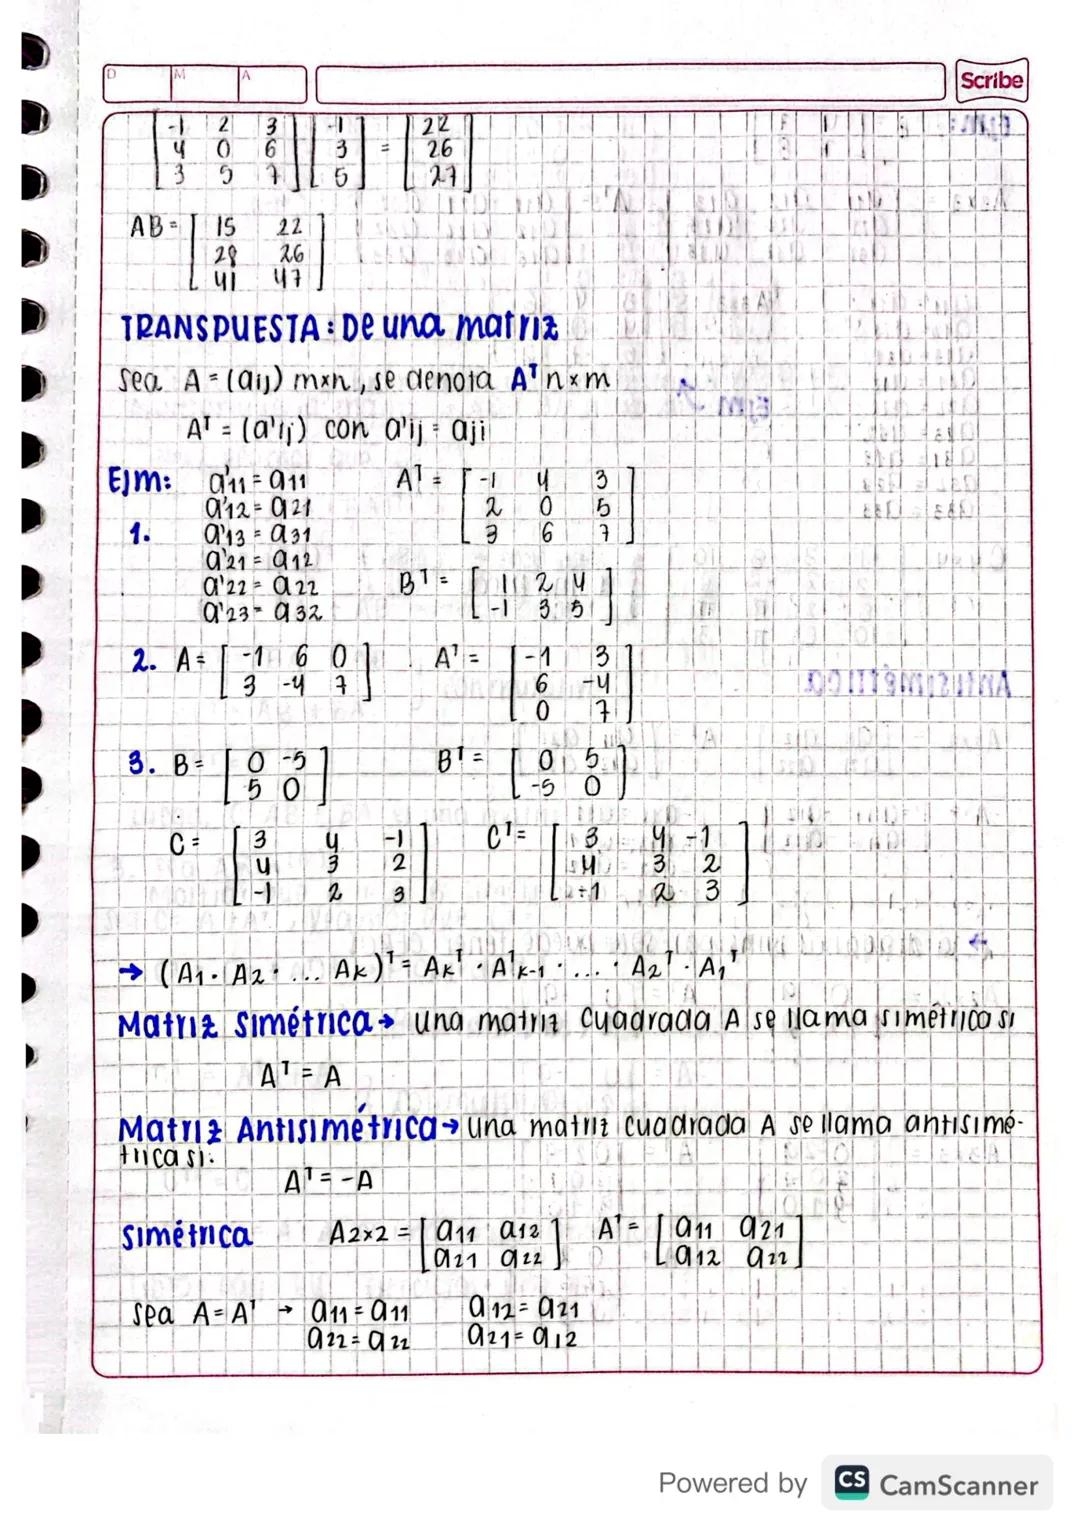 D M A
Scribe
[-1 2 3] [-1] = [22]
[4 0 6] [3] [26]
[3 5 7] [5] [27]
AB = [15 22]
[28 26]
[41 47]
TRANSPUESTA: De una matriz
Sea A = (aij) mxn, se denota Aᵀ n×m
Aᵀ = (a'ij) con a'ij = aji
Ejm: a'11 = a11 Aᵀ = [-1 4 3]
a'12 = a21 [2 0 5]
1. a'13 = a31 [3 6 7]
a'21 = a12
a'22 = a22 Bᵀ = [1 2 4]
a'23 = a32 [-1 3 5]
2. A = [-1 6 0] Aᵀ = [-1 3]
[3 -4 7] [6 -4]
[0 7]
3. B = [0 -5] Bᵀ = [0 5]
[5 0] [-5 0]
C = [3 4 -1] Cᵀ = [3 4 -1]
[4 3 2] [4 3 2]
[-1 2 3] [-1 2 3]
→ (A1 · A2 · ... Ak)ᵀ = Akᵀ · Aᵀk-1 · ... · A2ᵀ · A1ᵀ
Matriz Simétrica → una matriz cuadrada A se llama simétrica si
Aᵀ = A
Matriz Antisimétrica → una matriz cuadrada A se llama antisimé-
trica si:
Aᵀ = -A
Simétrica A2×2 = [a11 a12] Aᵀ = [a11 a21]
[a21 a22] [a12 a22]
Sea A = Aᵀ → a11 = a11 a12 = a21
a22 = a22 a21 = a12
Powered by CS CamScanner